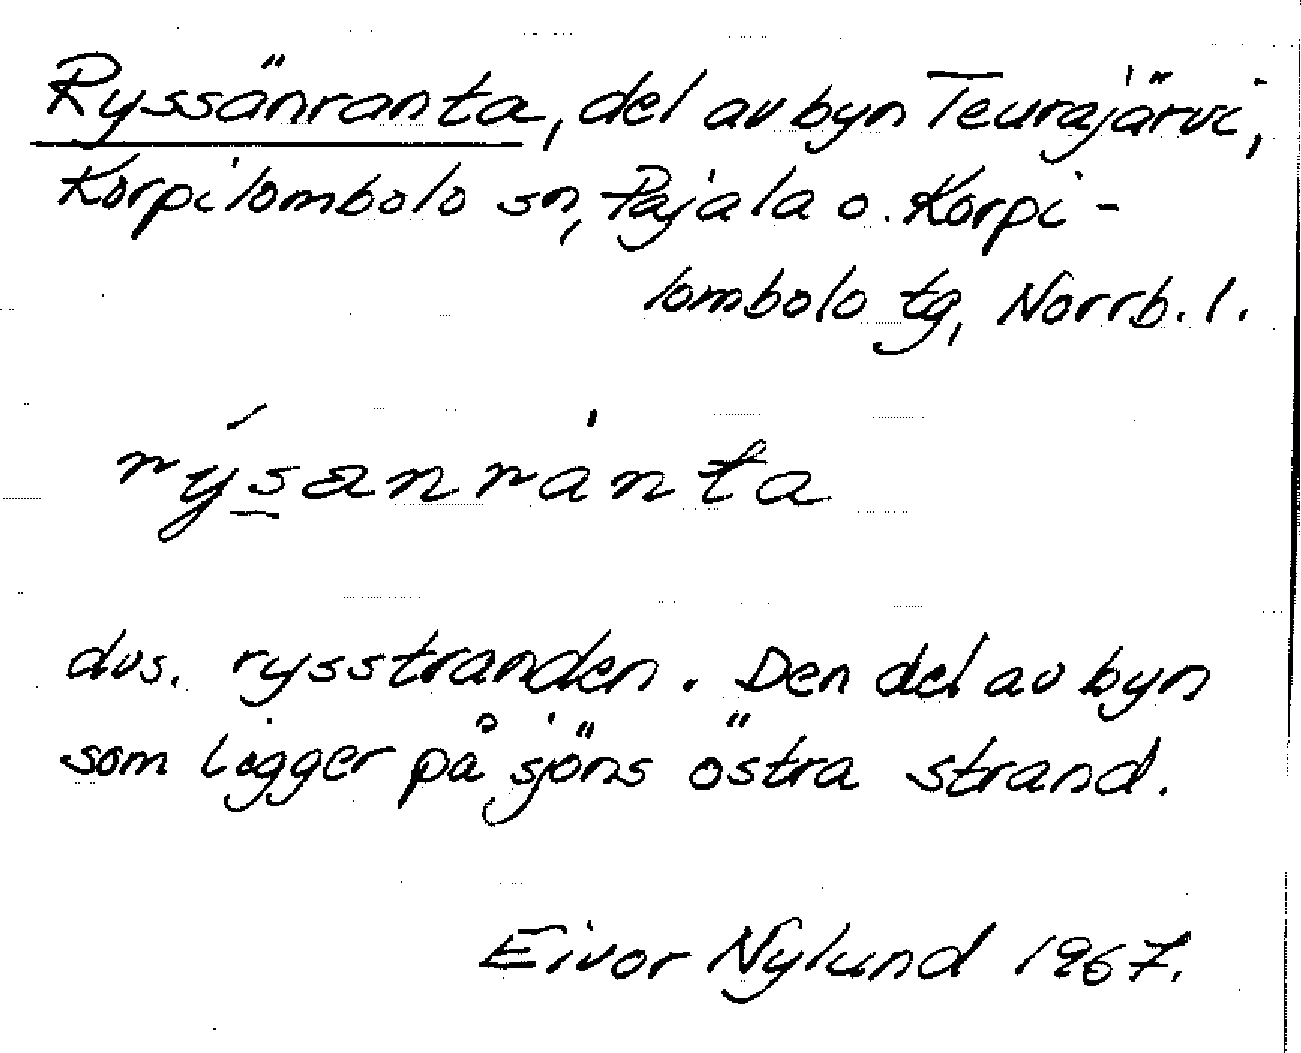 Ryssänranta, del av byn Teurajärvi,
Korpilombolo sn, Pajala o. Korpi-
lombolo tg, Norrb. l.
rýsanrànta
dvs. rysstranden. Den del av byn
som ligger på sjöns östra strand.
Eivor Nylund 1967.